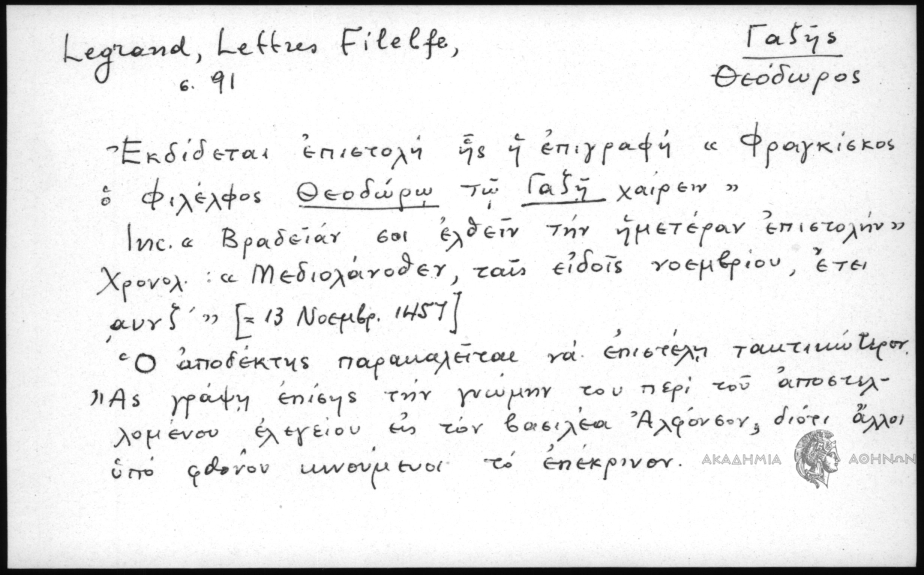 Legrand, Lettres Filelfe,
σ. 91
Γαζῆς
Θεόδωρος
Ἐκδίδεται ἐπιστολή ἧς ἡ ἐπιγραφή « Φραγκίσκος
ὁ Φιλέλφος Θεοδώρῳ τῷ Γαζῇ χαίρειν »
Inc. « Βραδεῖάν σοι ἐλθεῖν τήν ἡμετέραν ἐπιστολήν »
Χρονολ. : « Μεδιολάνοθεν, ταῖς εἰδοῖς νοεμβρίου, ἔτει
͵αυνζ´ » [= 13 Νοεμβρ. 1457]
Ὁ ἀποδέκτης παρακαλεῖται νά ἐπιστέλῃ τακτικώτερον.
Ἄς γράψῃ ἐπίσης τήν γνώμην του περί τοῦ ἀποστελ-
λομένου ἐλεγείου εἰς τόν βασιλέα Ἀλφόνσον, διότι ἄλλοι
ὑπό φθόνου κινούμενοι τό ἐπέκρινον.
ΑΚΑΔΗΜΙΑ ΑΘΗΝΩΝ